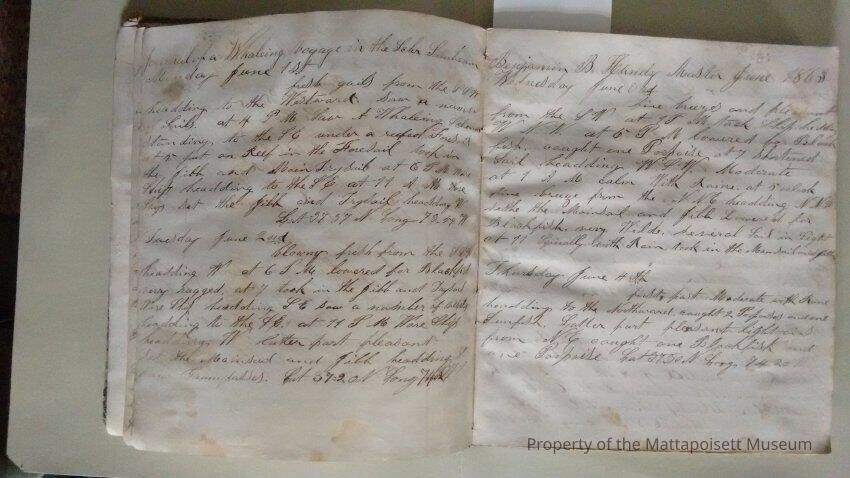 Journal of a Whaleing Voyage in the Schr
Monday June 1st
fresh gales from the
headding to the Westward. Saw a number
of Sails. at 4 P M Saw A Whaleing
standing to the SE under a reefed Foresail
at put an Reef in the Foresail took in
the Jibb and Main Trysail at 6 P M Wore
Ship headding to the SE at 11 P M Wore
Ship set the Jibb and Trysail headding W
Lat 37 37 N Long 72
Tuesday June 2nd
Blowing fresh from the
headding W. at 6 P M lowered for Blackfish
very ragged, at 7 took in the Jibb and Trysail
Wore Ship headding SE saw a number of
headding to the SE. at 11 P M Wore Ship
headding W latter part pleasant
Set the Mainsail and Jibb headding
Lat 37 20 N Long
Benjamin B. Handy Master June 1863
Wednesday June 3d
fine breeze and pleasant
from the SW at 1 P M tack Ship
at 6 P M lowered for Black
fish. caught one Porpoise at 7 shortened
Sail headding Moderate
at 1 A M calm With Raine. at 5 oclock
fine breeze from the N E headding
Sette the Mainsail and Jibb Lowered for
Blackfish very Wilde. Several Sail in Sight
at 11 Squally With Rain took in the Mainsail and Jibb
Thursday June 4th
first part Moderate with Raine
headding to the Northward caught 2 Porpoises and one
Sunfish. Latter part pleasant light airs
from N E caught one Blackfish and
one Porpoise Lat 37 50 N Long 74 20
Property of the Mattapoisett Museum